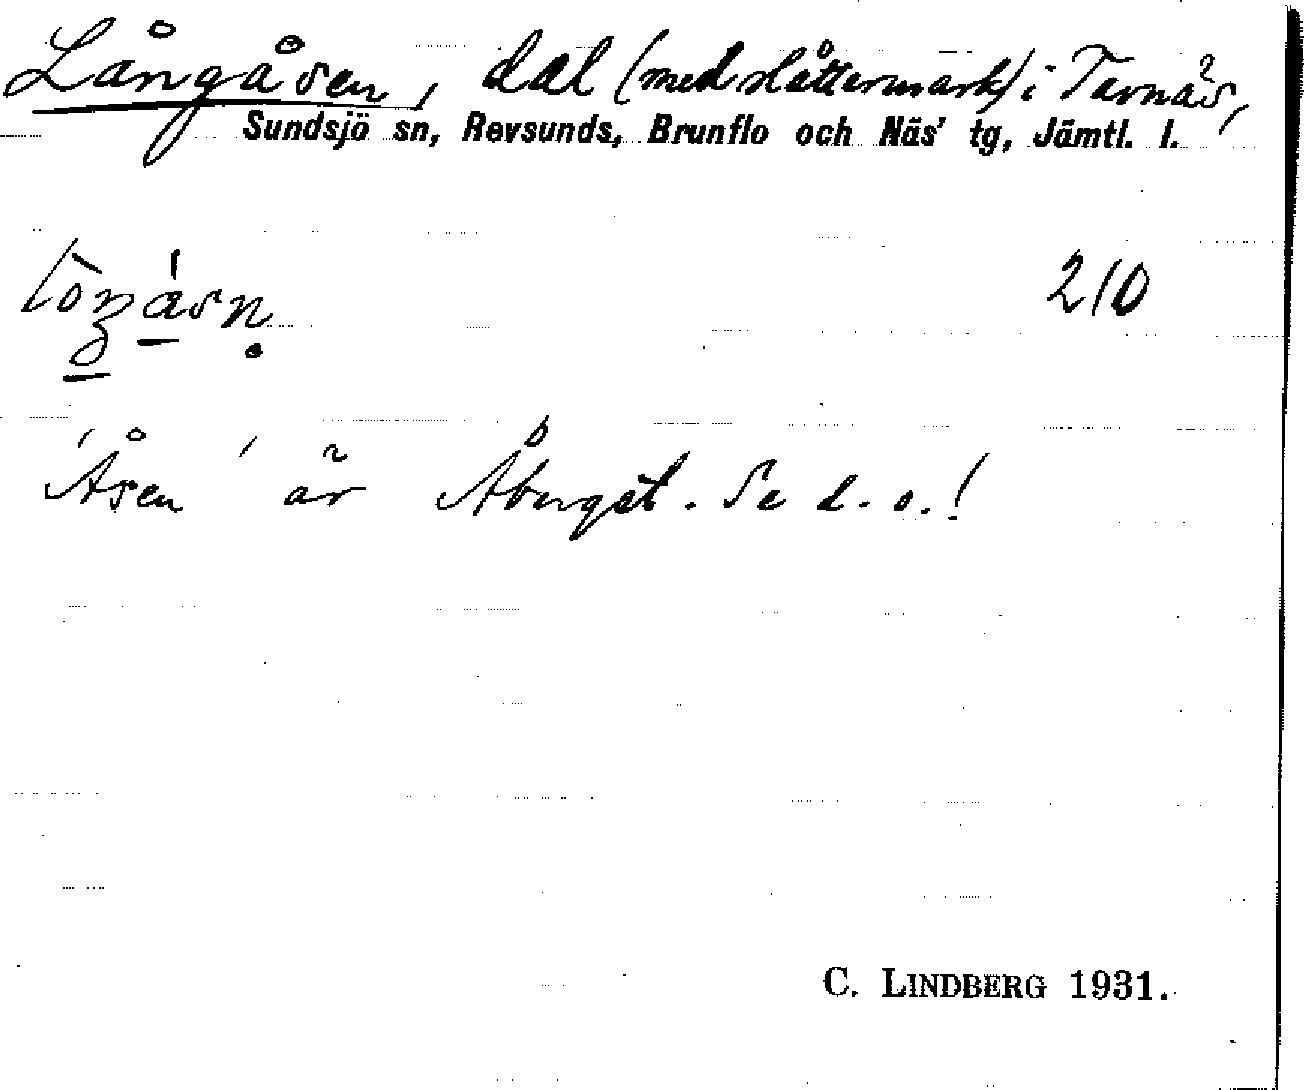 Långåsen, dal (med slåttermark) i Tavnäs,
Sundsjö sn, Revsunds, Brunflo och Näs' tg, Jämtl. l.
210
'Åsen' är Åberget. Se d. o.!
C. LINDBERG 1931.